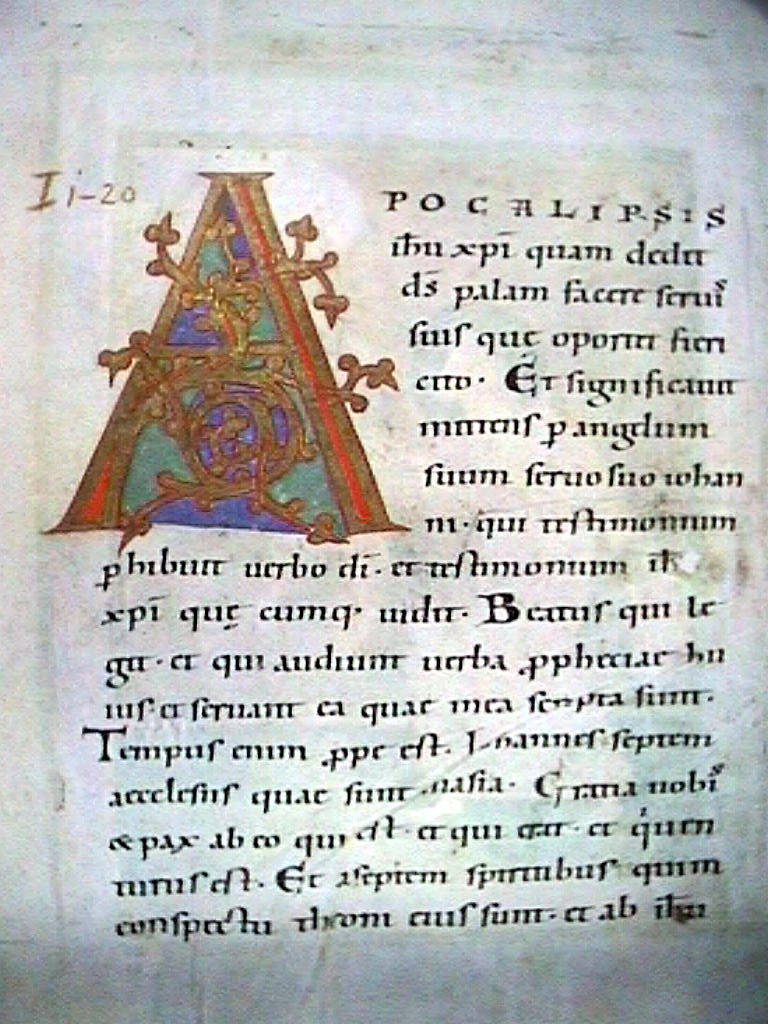 I i-20
APOCALIPSIS
ihu xpi quam dedit
ds palam facere serui
suis quę oportet fieri
cito. Et significauit
mittens p angelum
suum seruo suo iohan
ni. qui testimonium
phibuit uerbo di. et testimonium ih
xpi quę cumq; uidit. Beatus qui le
git. et qui audiunt uerba pphetiae hu
ius et seruant ea quae in ea scripta sunt.
Tempus enim ppe est. Iohannes septem
aecclesiis quae sunt in asia. Gratia nobis
& pax ab eo qui est. et qui erat. et qui uen
turus est. Et a septem spiritibus qui in
conspectu throni eius sunt. et ab ihu